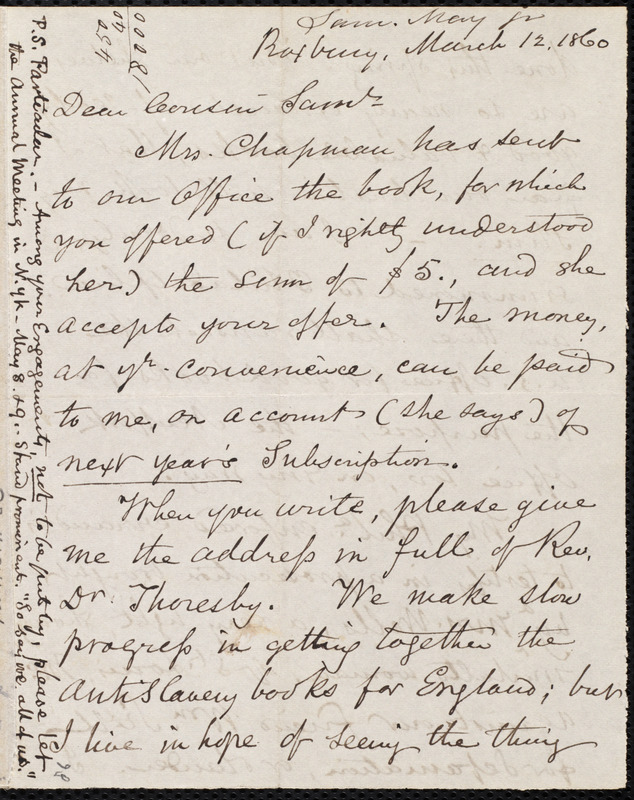 Sam. May Jr
Roxbury, March 12, 1860
Dear Cousin Saml.
Mrs. Chapman has sent
to our Office the book, for which
you offered (if I rightly understood
her) the sum of $5., and she
accepts your offer. The money,
at yr. convenience, can be paid
to me, on account (she says) of
next year's Subscription.
When you write, please give
me the address in full of Rev.
Dr. Thoresby. We make slow
progress in getting together the
AntiSlavery books for England; but
I live in hope of seeing the thing
P.S. Particular. - Among your Engagements, not to be put by, please let
the Annual Meeting in N.Yk. May 8. & 9. - Stand prominent. "So say we, all of us."